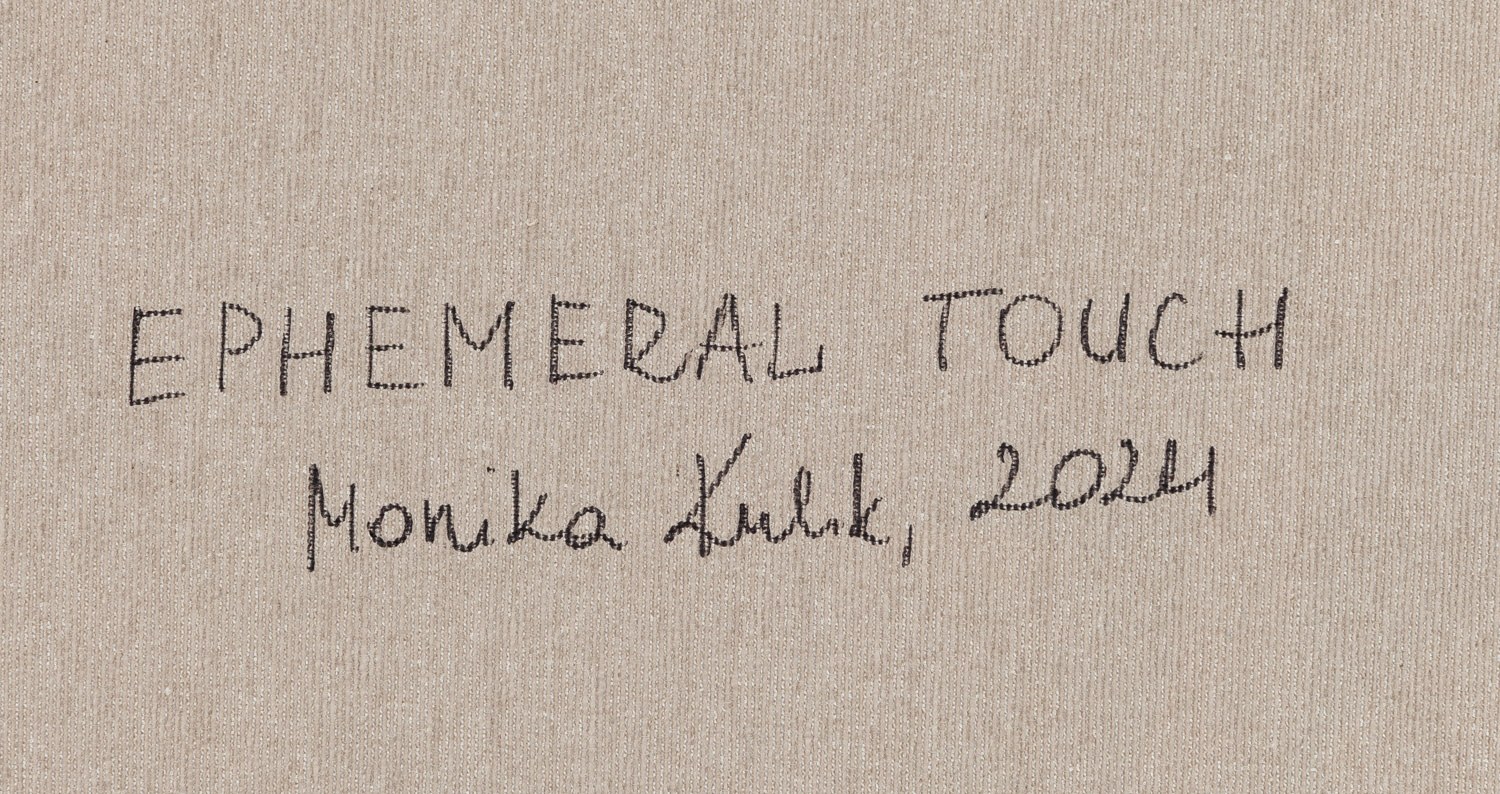 EPHEMERAL TOUCH
Monika Kulik, 2024